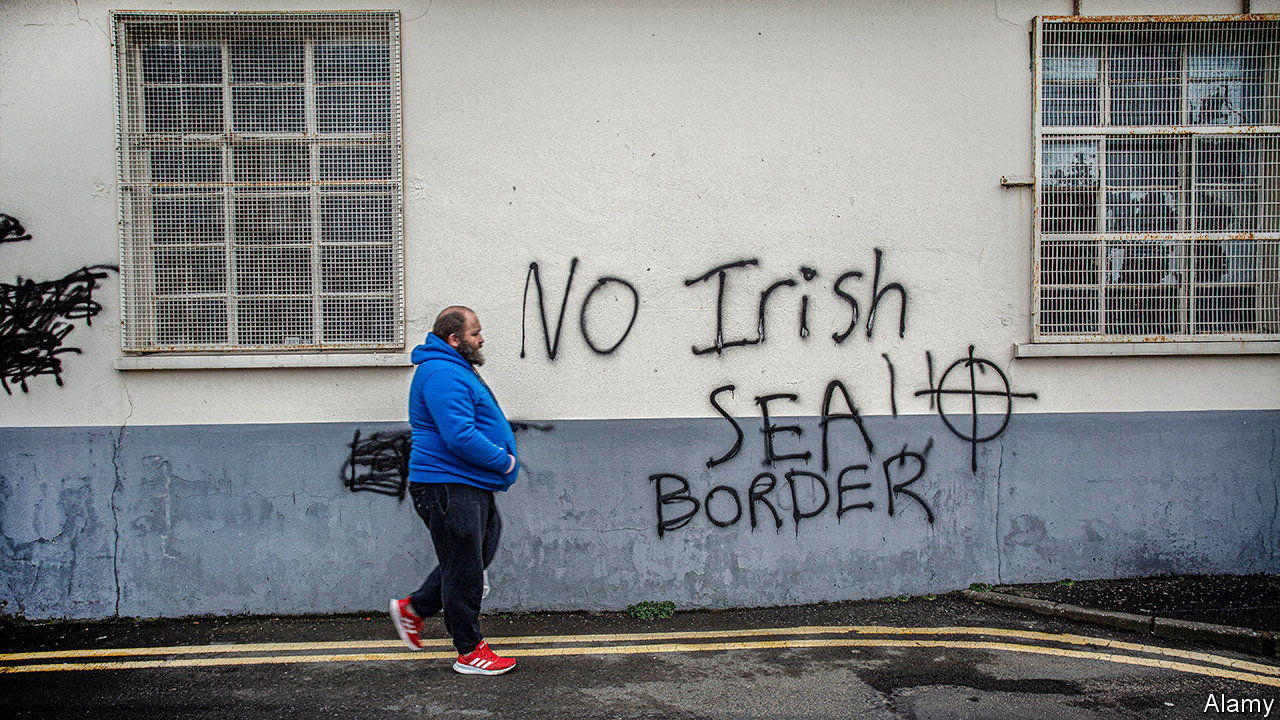 NO Irish
SEA !!
BORDER
Alamy